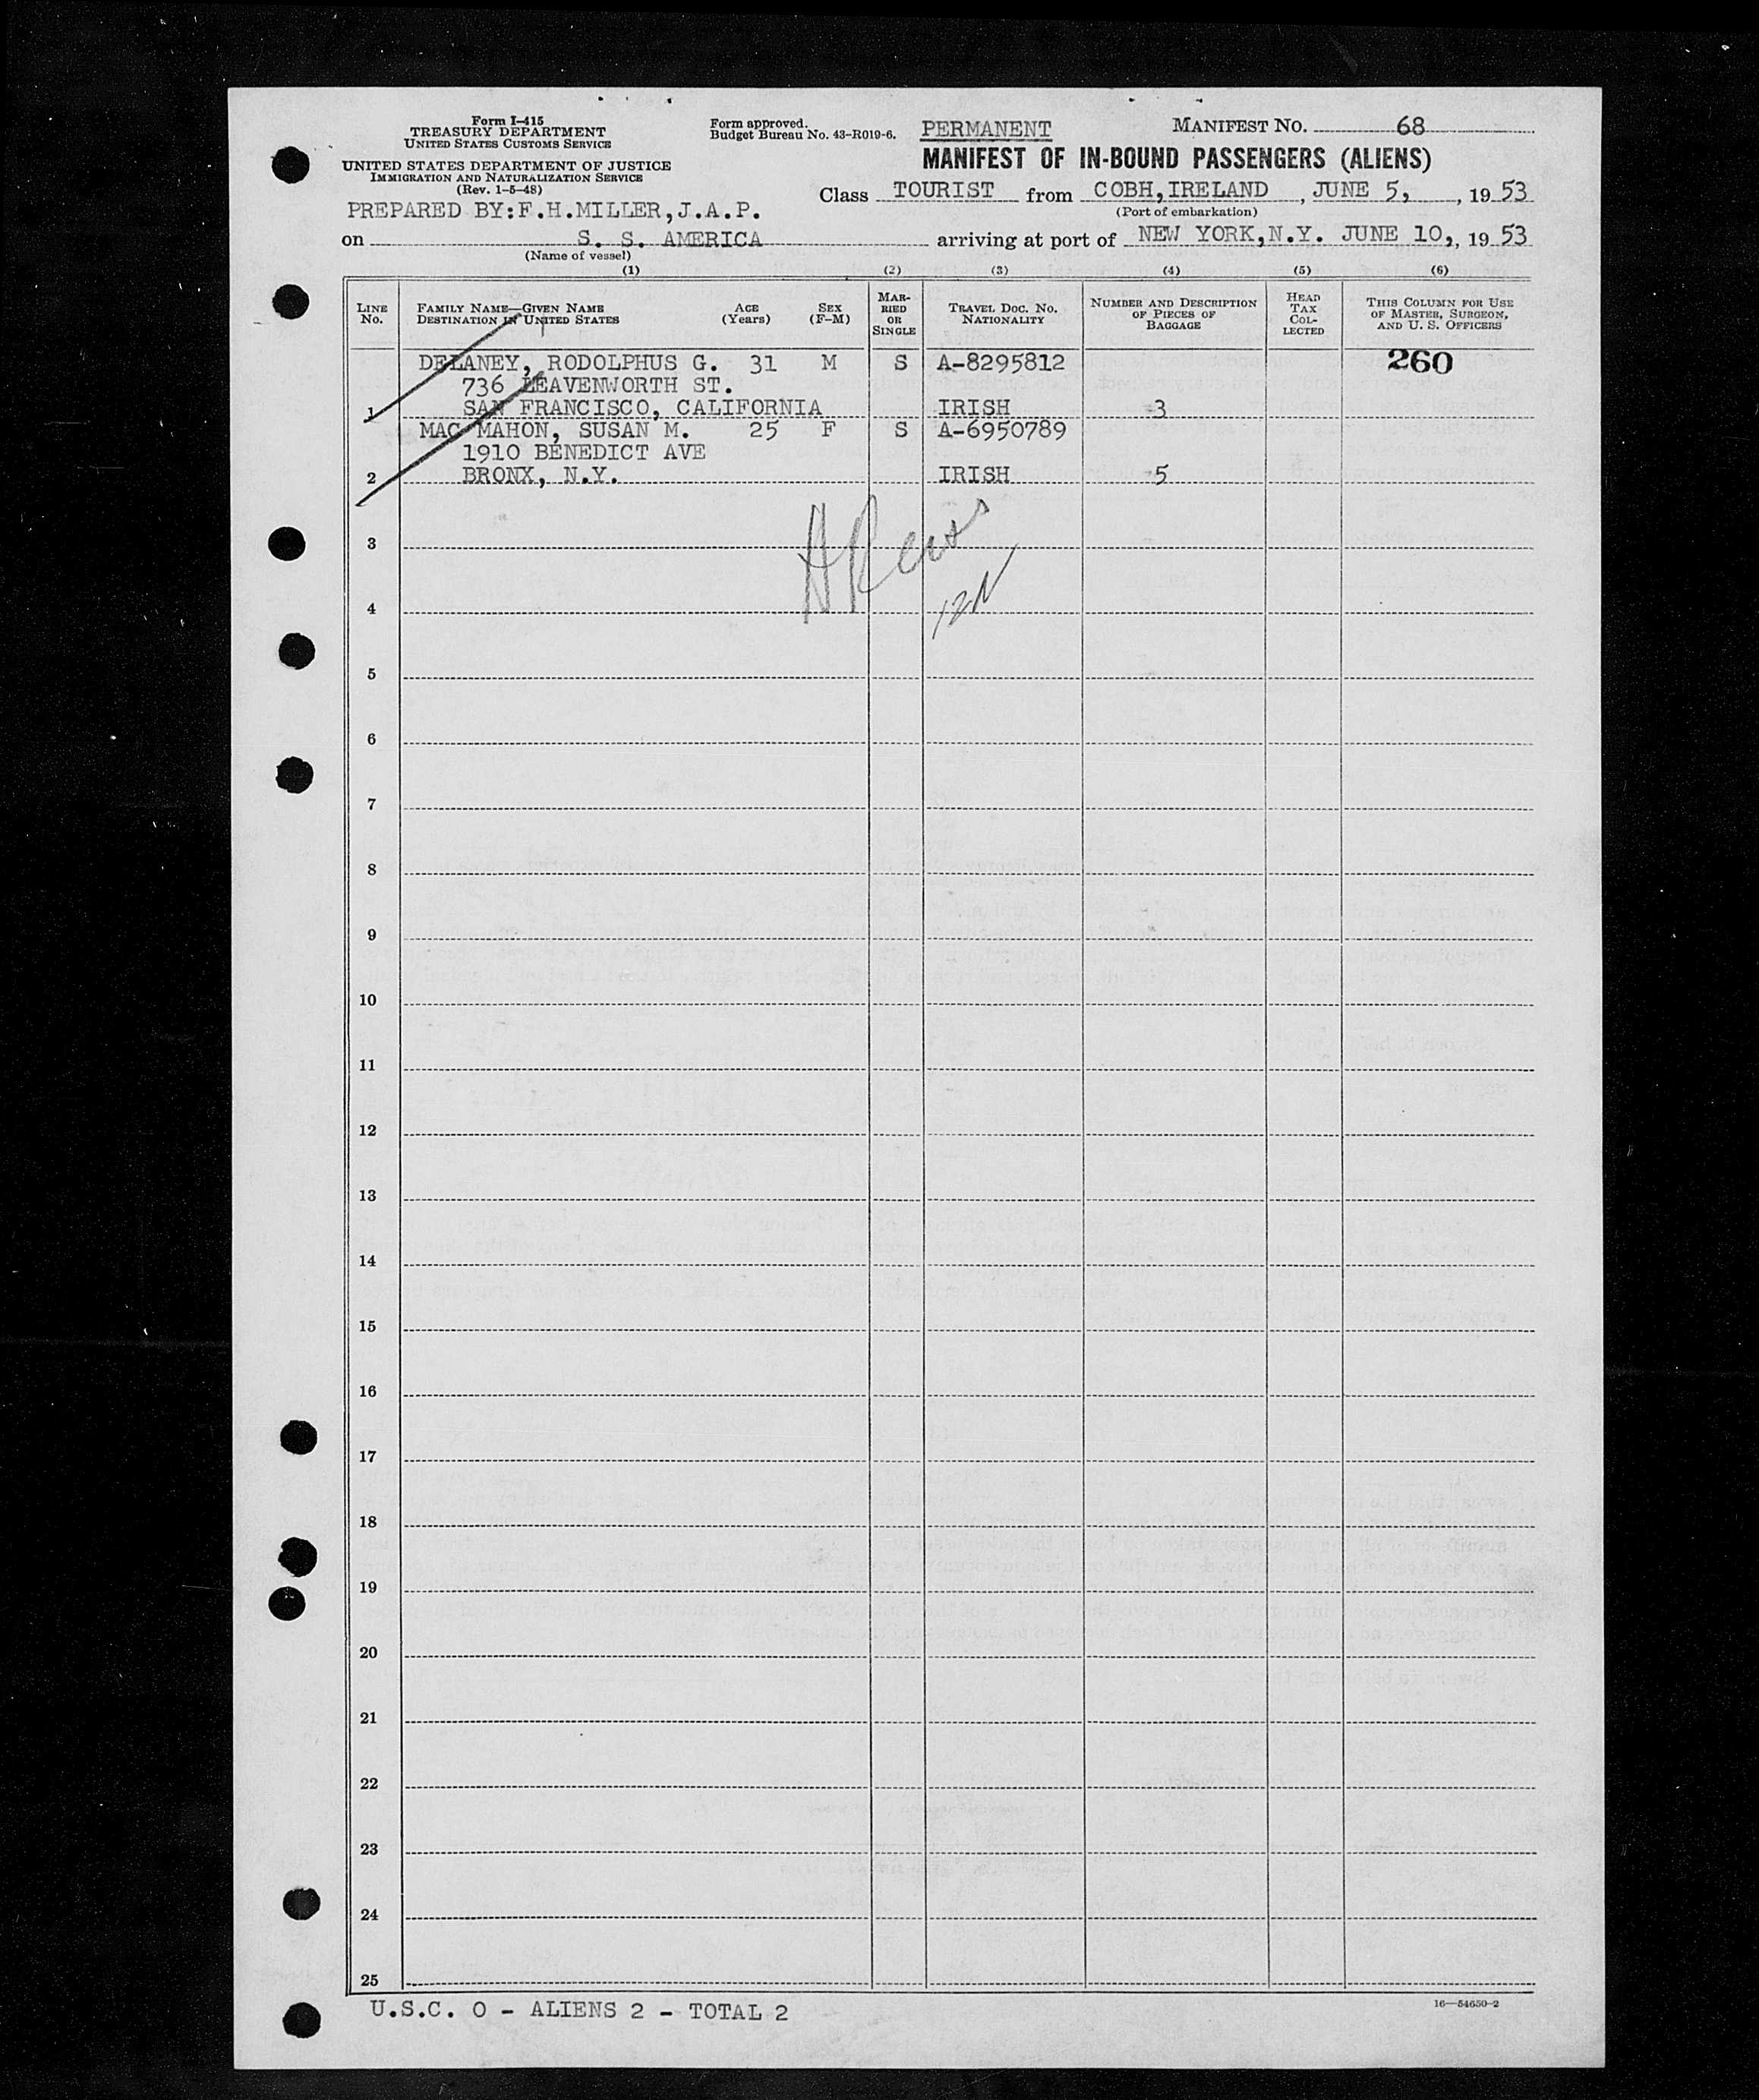 Form I-415
TREASURY DEPARTMENT
UNITED STATES CUSTOMS SERVICE
UNITED STATES DEPARTMENT OF JUSTICE
IMMIGRATION AND NATURALIZATION SERVICE
(Rev. 1-5-48)
PREPARED BY:F.H.MILLER,J.A.P.
Form approved.
Budget Bureau No. 43-R019-6.
PERMANENT
MANIFEST NO. 68
MANIFEST OF IN-BOUND PASSENGERS (ALIENS)
Class TOURIST from COBH,IRELAND, JUNE 5, , 19 53
(Port of embarkation)
on S. S. AMERICA arriving at port of NEW YORK,N.Y. JUNE 10,, 19 53
(Name of vessel)
(1) (2) (3) (4) (5) (6)
LINE NO.
FAMILY NAME—GIVEN NAME
DESTINATION IN UNITED STATES
AGE (Years)
SEX (F-M)
MARRIED OR SINGLE
TRAVEL DOC. NO. NATIONALITY
NUMBER AND DESCRIPTION OF PIECES OF BAGGAGE
HEAD TAX COLLECTED
THIS COLUMN FOR USE OF MASTER, SURGEON, AND U. S. OFFICERS
DELANEY, RODOLPHUS G. 31 M S A-8295812 260
736 LEAVENWORTH ST.
1 SAN FRANCISCO, CALIFORNIA IRISH 3
MAC MAHON, SUSAN M. 25 F S A-6950789
1910 BENEDICT AVE
2 BRONX, N.Y. IRISH 5
3
4
5
6
7
8
9
10
11
12
13
14
15
16
17
18
19
20
21
22
23
24
25
U.S.C. 0 - ALIENS 2 - TOTAL 2
16—54650-2